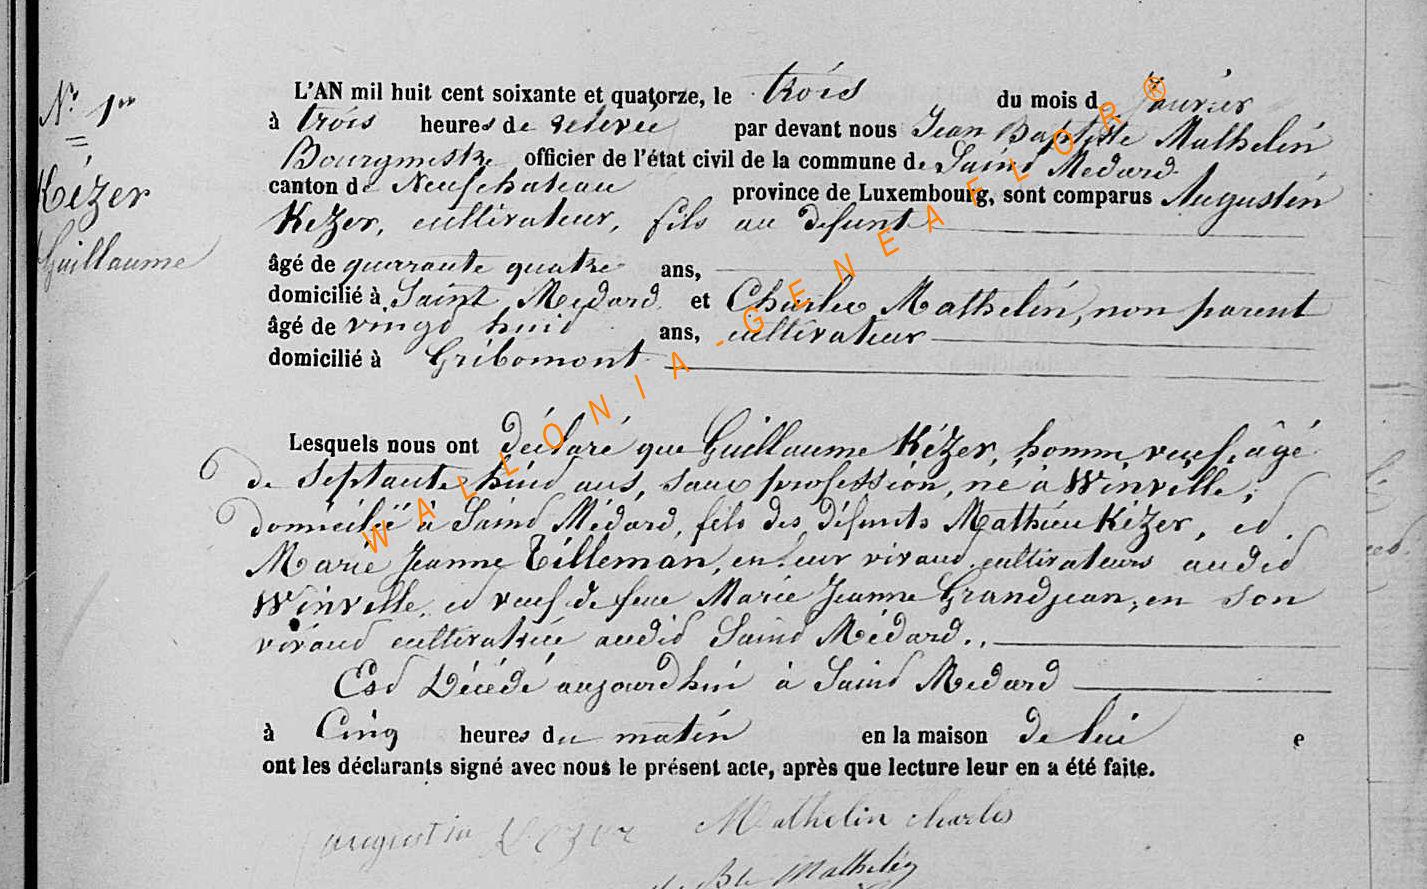 Nº 1er
Kézer
Guillaume
L'AN mil huit cent soixante et quatorze, le trois du mois d Janvier
à trois heures de relevée par devant nous Jean Baptiste Mathelin
Bourgmestre officier de l'état civil de la commune de Saint Médard
canton de Neufchateau province de Luxembourg, sont comparus Augustin
Kézer, cultivateur, fils au défunt
âgé de quarante quatre ans,
domicilié à Saint Médard et Charles Mathelin, non parent
âgé de vingt huit ans, cultivateur
domicilié à Gribomont
Lesquels nous ont déclaré que Guillaume Kézer, homme veuf, âgé
de septante huit ans, sans profession, né à Winville,
domicilié à Saint Médard, fils des défunts Mathieu Kézer, et
Marie Jeanne Tilleman, en leur vivant cultivateurs audit
Winville, et veuf de feue Marie Jeanne Grandjean, en son
vivant cultivatrice audit Saint Médard.
Est Décédé aujourd'hui à Saint Médard
à Cinq heures du matin en la maison de lui e
ont les déclarants signé avec nous le présent acte, après que lecture leur en a été faite.
augustin Kezer Mathelin charles
J Bte Mathelin
WALLONIA-GENEAFLOR®